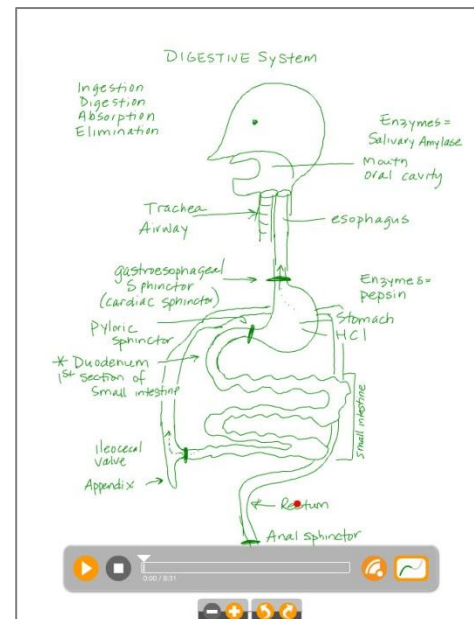 DIGESTIVE System
Ingestion
Digestion
Absorption
Elimination
Enzymes=
Salivary Amylase
Mouth
oral cavity
Trachea
Airway
esophagus
gastroesophageal
Sphinctor
(cardiac sphinctor)
Enzymes=
pepsin
Stomach
HCl
Pyloric
sphinctor
* Duodenum
1st section of
small intestine
small intestine
Ileocecal
valve
Appendix
Rectum
Anal sphinctor
0:00 / 8:31